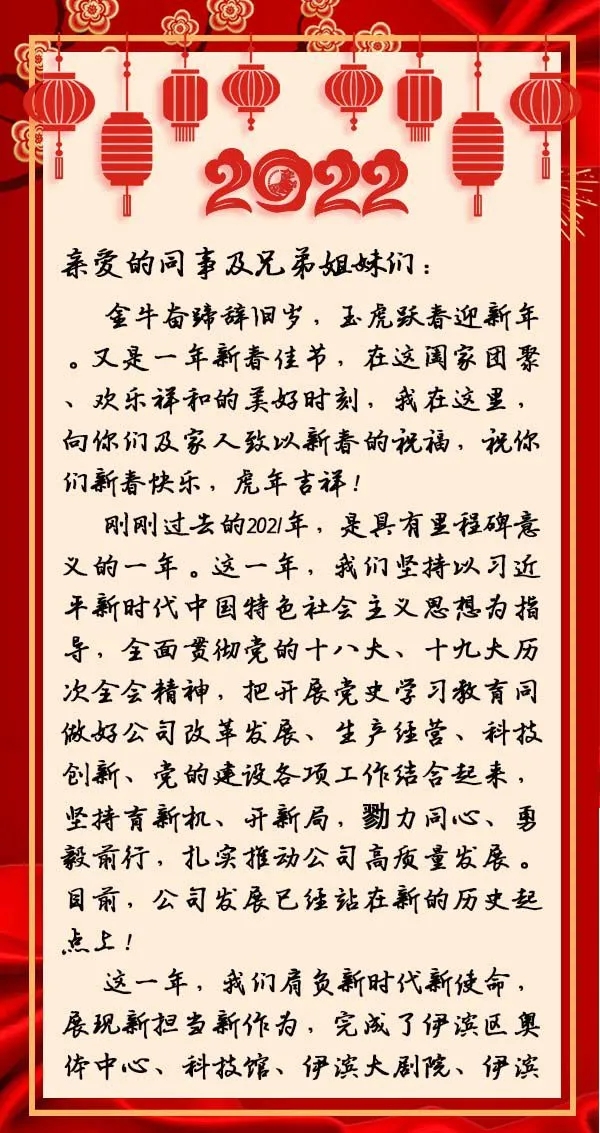 2022
亲爱的同事及兄弟姐妹们：
金牛奋蹄辞旧岁，玉虎跃春迎新年
。又是一年新春佳节，在这阖家团聚
、欢乐祥和的美好时刻，我在这里，
向你们及家人致以新春的祝福，祝你
们新春快乐，虎年吉祥！
刚刚过去的2021年，是具有里程碑意
义的一年。这一年，我们坚持以习近
平新时代中国特色社会主义思想为指
导，全面贯彻党的十八大、十九大历
次全会精神，把开展党史学习教育同
做好公司改革发展、生产经营、科技
创新、党的建设各项工作结合起来，
坚持育新机、开新局，勠力同心、勇
毅前行，扎实推动公司高质量发展。
目前，公司发展已经站在新的历史起
点上！
这一年，我们肩负新时代新使命，
展现新担当新作为，完成了伊滨区奥
体中心、科技馆、伊滨大剧院、伊滨